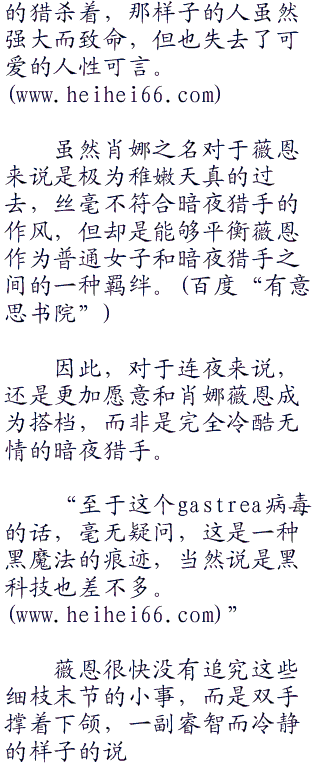 的猎杀着，那样子的人虽然
强大而致命，但也失去了可
爱的人性可言。
(www.heihei66.com)
虽然肖娜之名对于薇恩
来说是极为稚嫩天真的过
去，丝毫不符合暗夜猎手的
作风，但却是能够平衡薇恩
作为普通女子和暗夜猎手之
间的一种羁绊。(百度“有意
思书院”)
因此，对于连夜来说，
还是更加愿意和肖娜薇恩成
为搭档，而非是完全冷酷无
情的暗夜猎手。
“至于这个gastrea病毒
的话，毫无疑问，这是一种
黑魔法的痕迹，当然说是黑
科技也差不多。
(www.heihei66.com)”
薇恩很快没有追究这些
细枝末节的小事，而是双手
撑着下颌，一副睿智而冷静
的样子的说